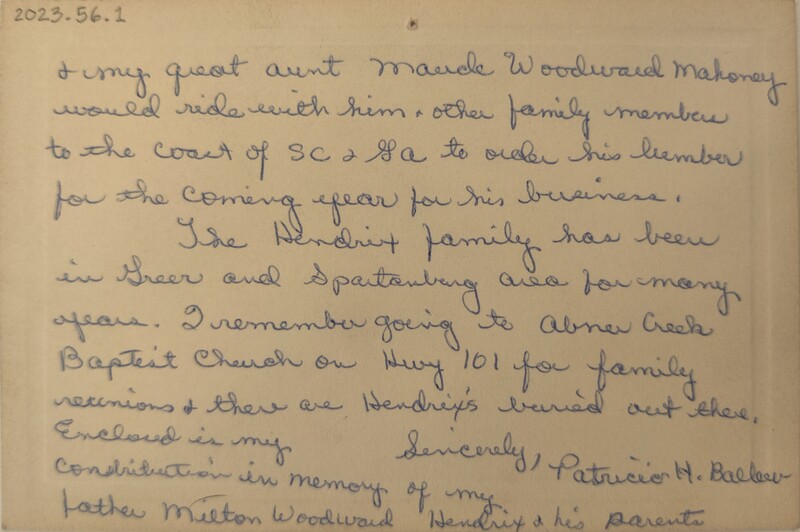 2023.56.1
& my great aunt Maude Woodward Mahoney
would ride with him & other family members
to the coast of SC & Ga to order his lumber
for the coming year for his business.
The Hendrix family has been
in Greer and Spartanburg area for many
years. I remember going to Abner Creek
Baptist Church on Hwy 101 for family
reunions & there are Hendrix's buried out there.
Enclosed is my
Sincerely, Patricia H. Ballew
contribution in memory of my
father Milton Woodward Hendrix & his parents